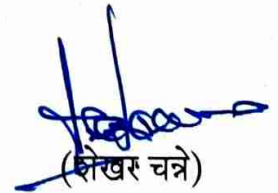 (शेखर चन्ने)